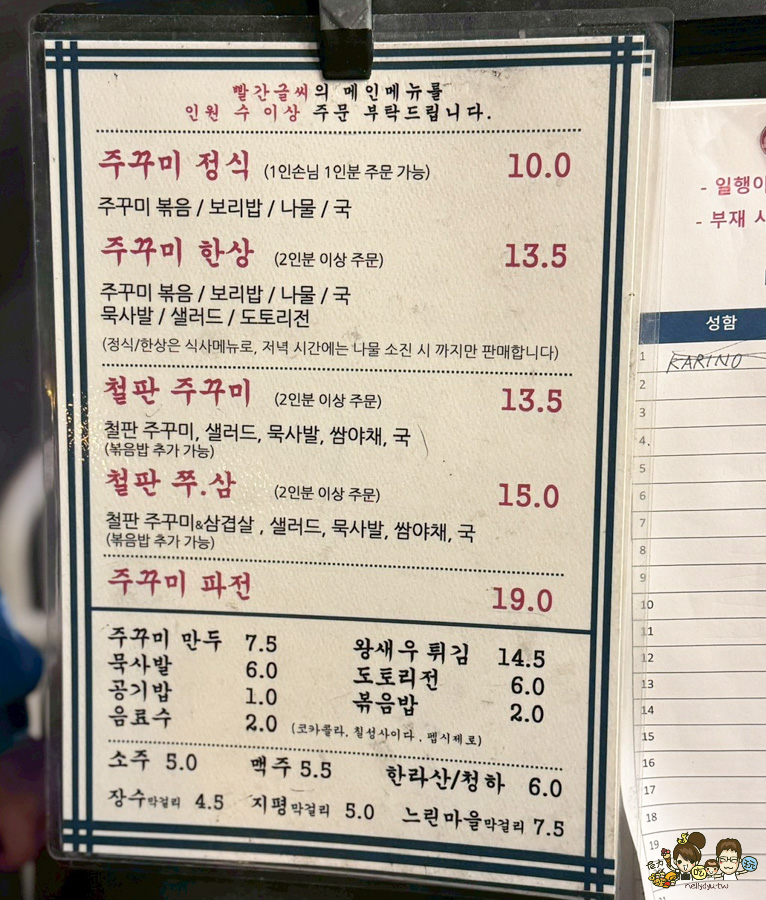 빨간글씨의 메인메뉴를
인원 수 이상 주문 부탁드립니다.
주꾸미 정식 (1인손님 1인분 주문 가능) 10.0
주꾸미 볶음 / 보리밥 / 나물 / 국
주꾸미 한상 (2인분 이상 주문) 13.5
주꾸미 볶음 / 보리밥 / 나물 / 국
묵사발 / 샐러드 / 도토리전
(정식/한상은 식사메뉴로, 저녁 시간에는 나물 소진 시 까지만 판매합니다)
철판 주꾸미 (2인분 이상 주문) 13.5
철판 주꾸미, 샐러드, 묵사발, 쌈야채, 국
(볶음밥 추가 가능)
철판 쭈.삼 (2인분 이상 주문) 15.0
철판 주꾸미&삼겹살 , 샐러드, 묵사발, 쌈야채, 국
(볶음밥 추가 가능)
주꾸미 파전 19.0
주꾸미 만두 7.5 왕새우 튀김 14.5
묵사발 6.0 도토리전 6.0
공기밥 1.0 볶음밥 2.0
음료수 2.0 (코카콜라, 칠성사이다 , 펩시제로)
소주 5.0 맥주 5.5 한라산/청하 6.0
장수막걸리 4.5 지평막걸리 5.0 느린마을막걸리 7.5
- 일행이
- 부재 시
성함
1 KARINO
2
3
4
5
6
7
8
9
10
11
12
13
14
15
16
17
18
19
nellydyu.tw